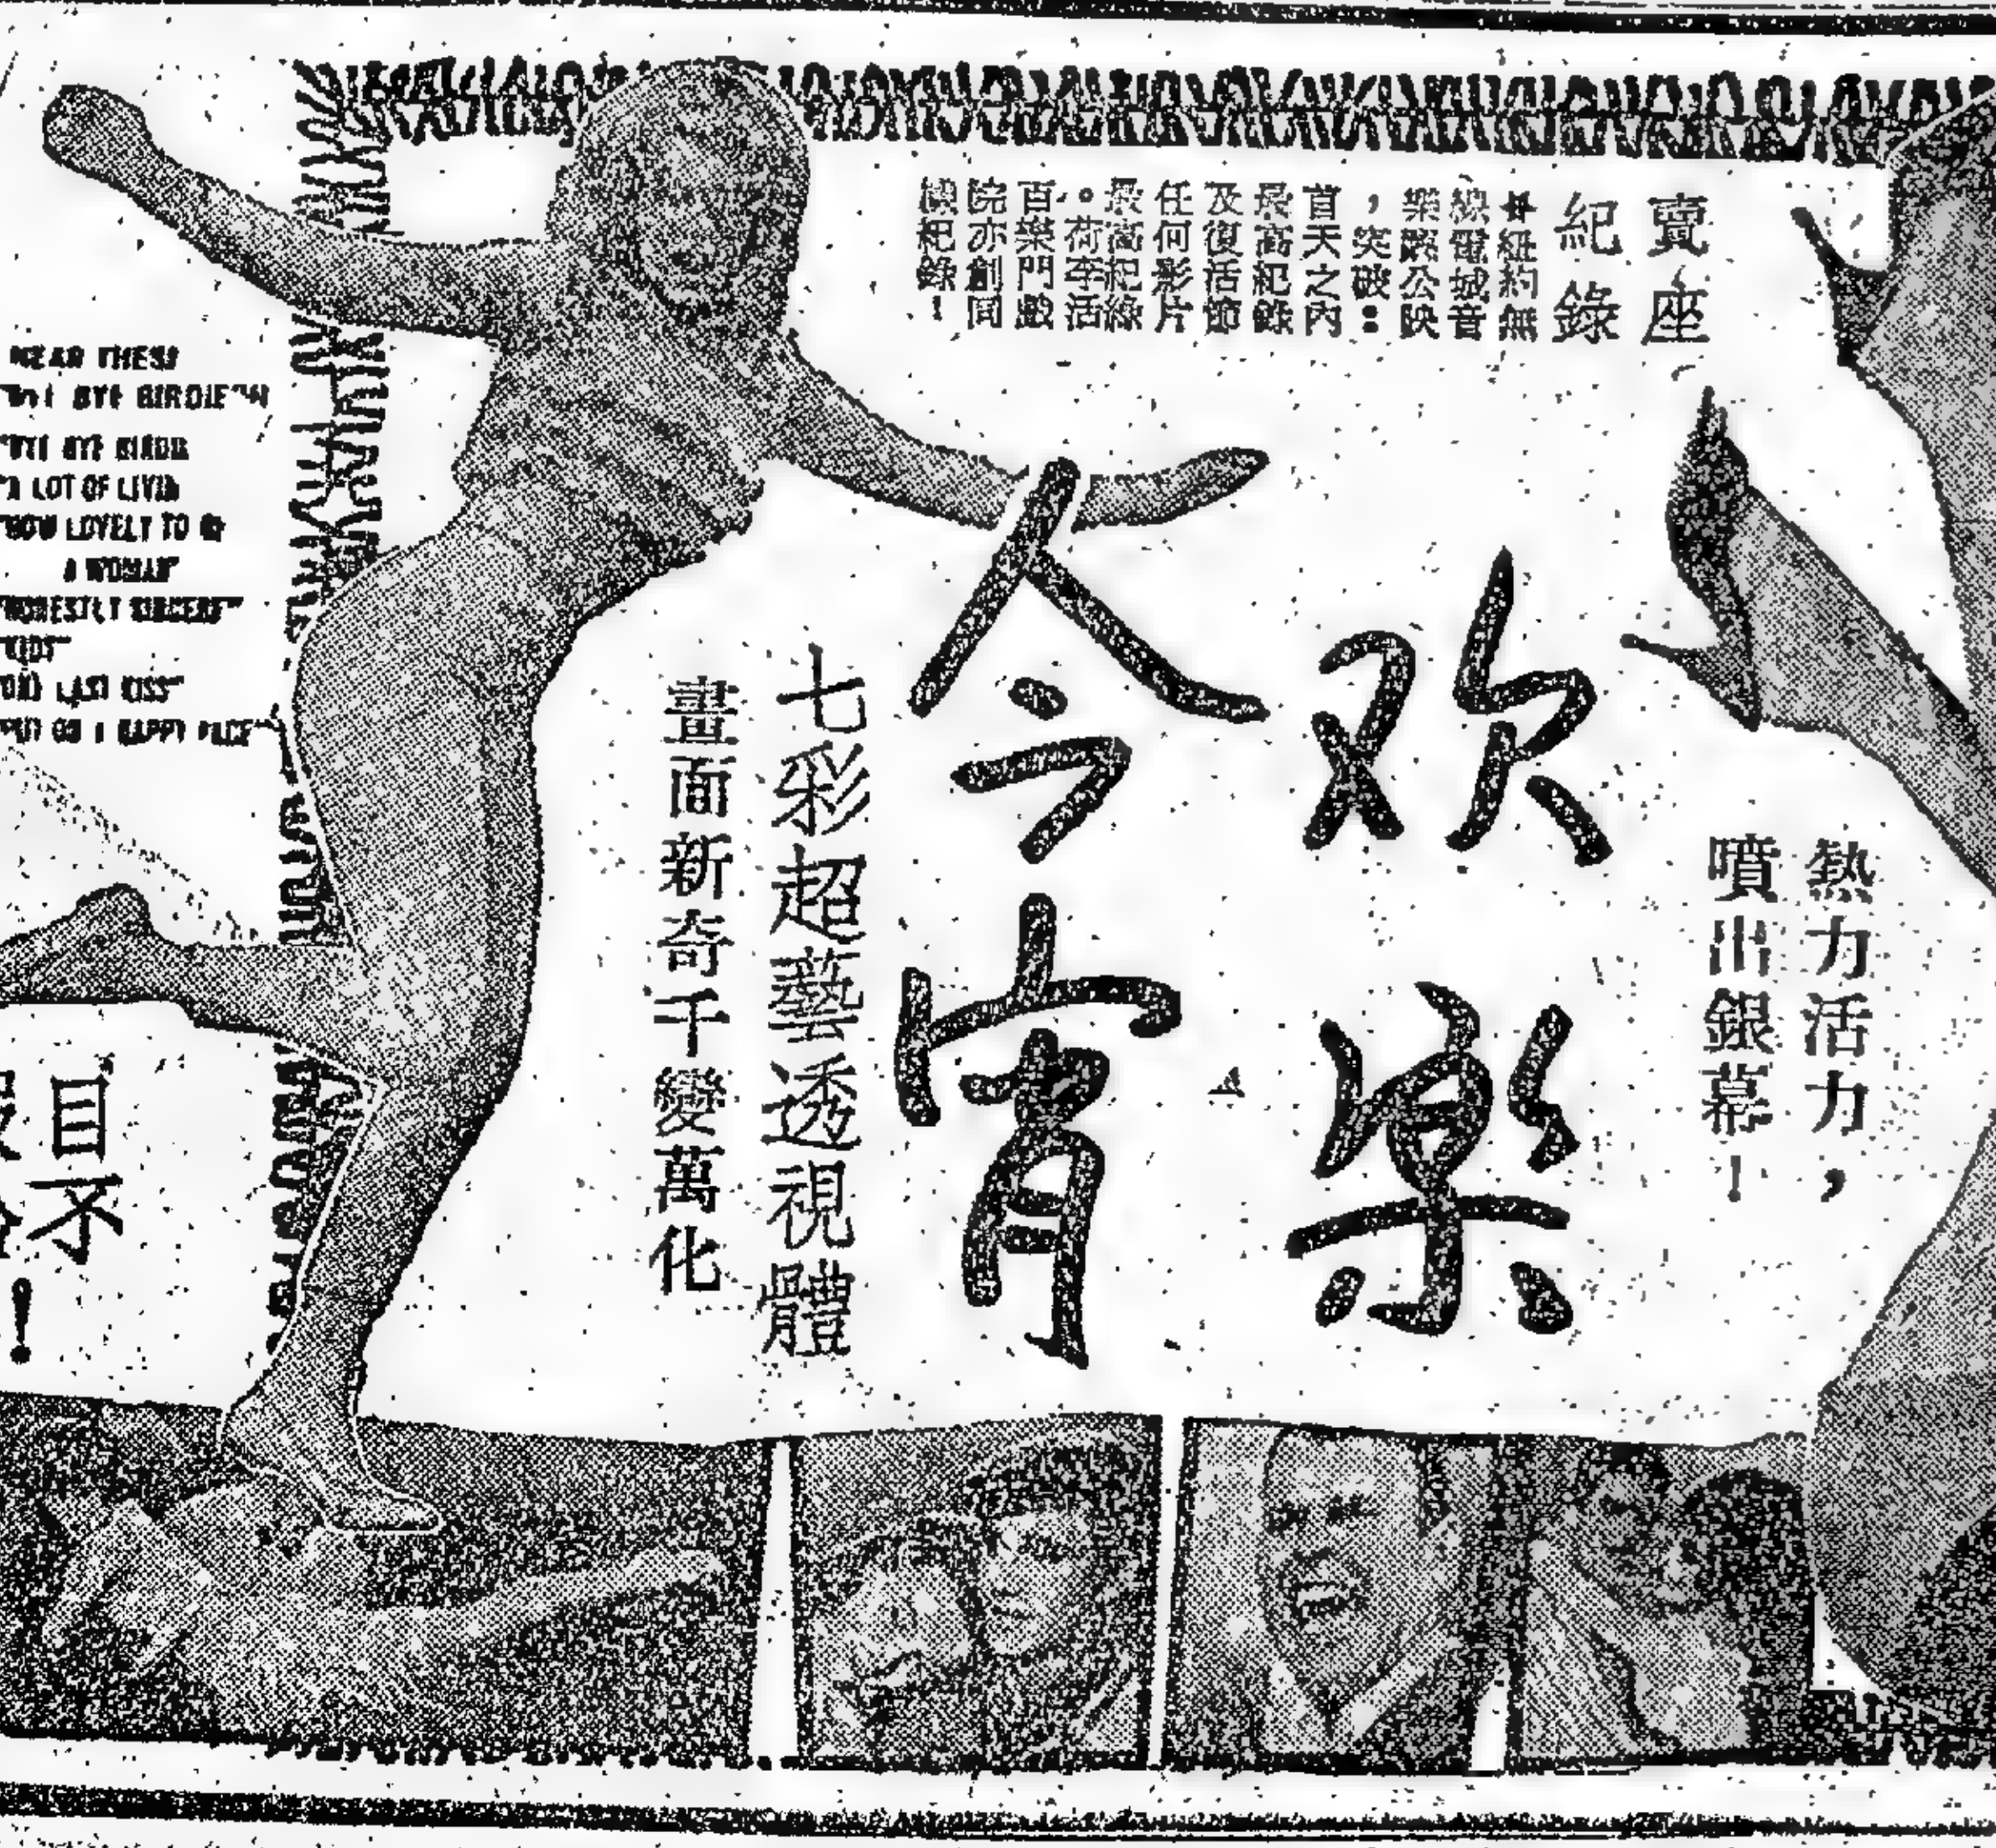 賣座
紀錄
在紐約無
線電城音
樂廳公映
，突破：
首天之內
最高紀錄
及復活節
任何影片
最高紀綠
。荷李活
百樂門戲
院亦創同
樣紀錄！
熱力活力，
噴出銀幕！
欢樂
今宵
七彩超藝透視體
畫面新奇千變萬化
HEAR THESE
BYE BIRDIE"
"BYE BYE BIRDIE
"A LOT OF LIVIN
"HOW LOVELY TO BE
A WOMAN"
"HONESTLY SINCERE"
"KIDS"
ONE LAST KISS"
PUT ON A HAPPY FACE"
目不
！